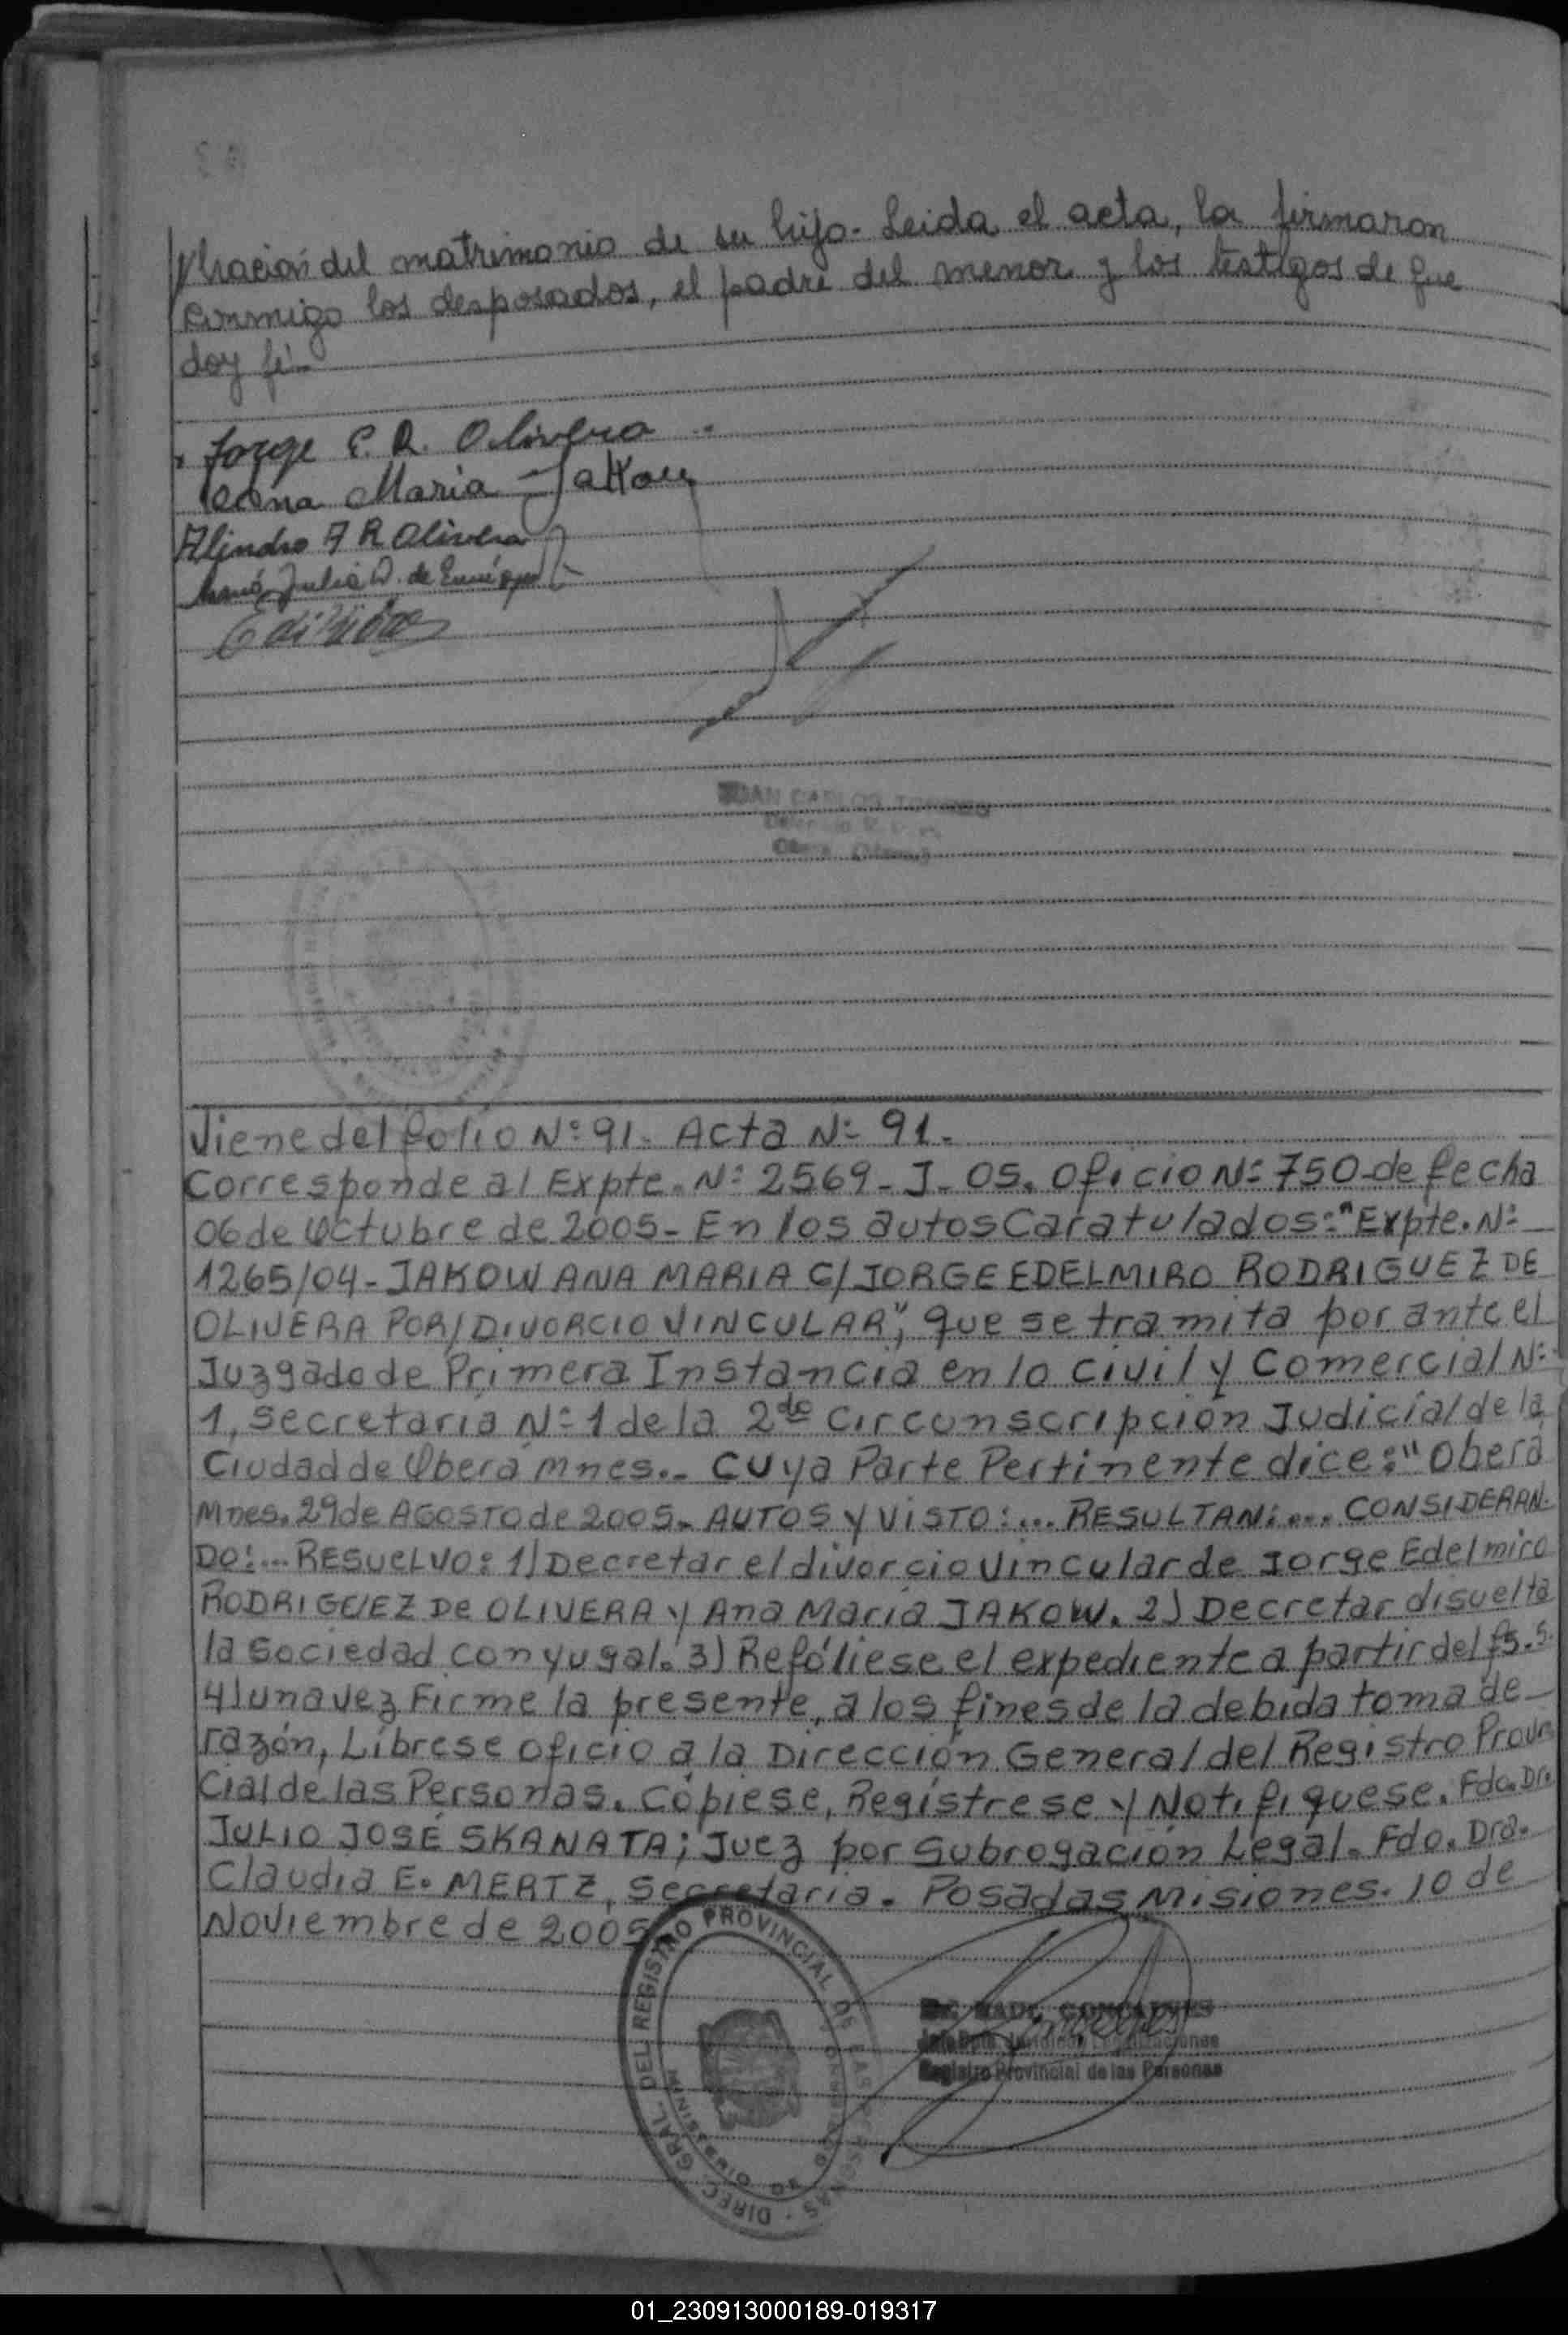 bración del matrimonio de su hijo. Leida el acta, la firmaron
conmigo los desposados, el padre del menor y los testigos de que
doy fé.-
Jorge E. R. Olivera
Ana Maria Jakow
Alindro F R Olivera
Julia de
JUAN CARLOS
Viene del folio Nº 91. Acta Nº 91.
Corresponde al Expte. Nº 2569-J-05. Oficio Nº 750-de fecha
06 de Octubre de 2005- En los autos Caratulados: "Expte. Nº
1265/04-JAKOW ANA MARIA C/JORGE EDELMIRO RODRIGUEZ DE
OLIVERA POR/DIVORCIO VINCULAR", que se tramita por ante el
Juzgado de Primera Instancia en lo Civil y Comercial Nº
1, Secretaria Nº 1 de la 2do Circunscripción Judicial de la
Ciudad de Oberá Mnes.. Cuya Parte Pertinente dice: "Oberá
Mnes. 29 de AGOSTO de 2005. AUTOS Y VISTO:... RESULTAN:... CONSIDERAN-
DO:... RESUELVO: 1) Decretar el divorcio Vincular de Jorge Edelmiro
RODRIGUEZ DE OLIVERA y Ana Maria JAKOW. 2) Decretar disuelta
la sociedad conyugal. 3) Refóliese el expediente a partir del fs. 5.
4) una vez Firme la presente, a los fines de la debida toma de
razón, Líbrese oficio a la Dirección General del Registro Provin
cial de las Personas. Cópiese, Regístrese y Notifiquese. Fdo. Dr.
JULIO JOSÉ SKANATA; Juez por Subrogación Legal. Fdo. Dra.
Claudia E. MERTZ, Secretaria. Posadas Misiones. 10 de
Noviembre de 2005
DIREC. GRAL. DEL REGISTRO PROVINCIAL DE LAS PERSONAS
MINISTERIO DE GOBIERNO
RAUL GONCALVES
Registro Provincial de las Personas
01_230913000189-019317